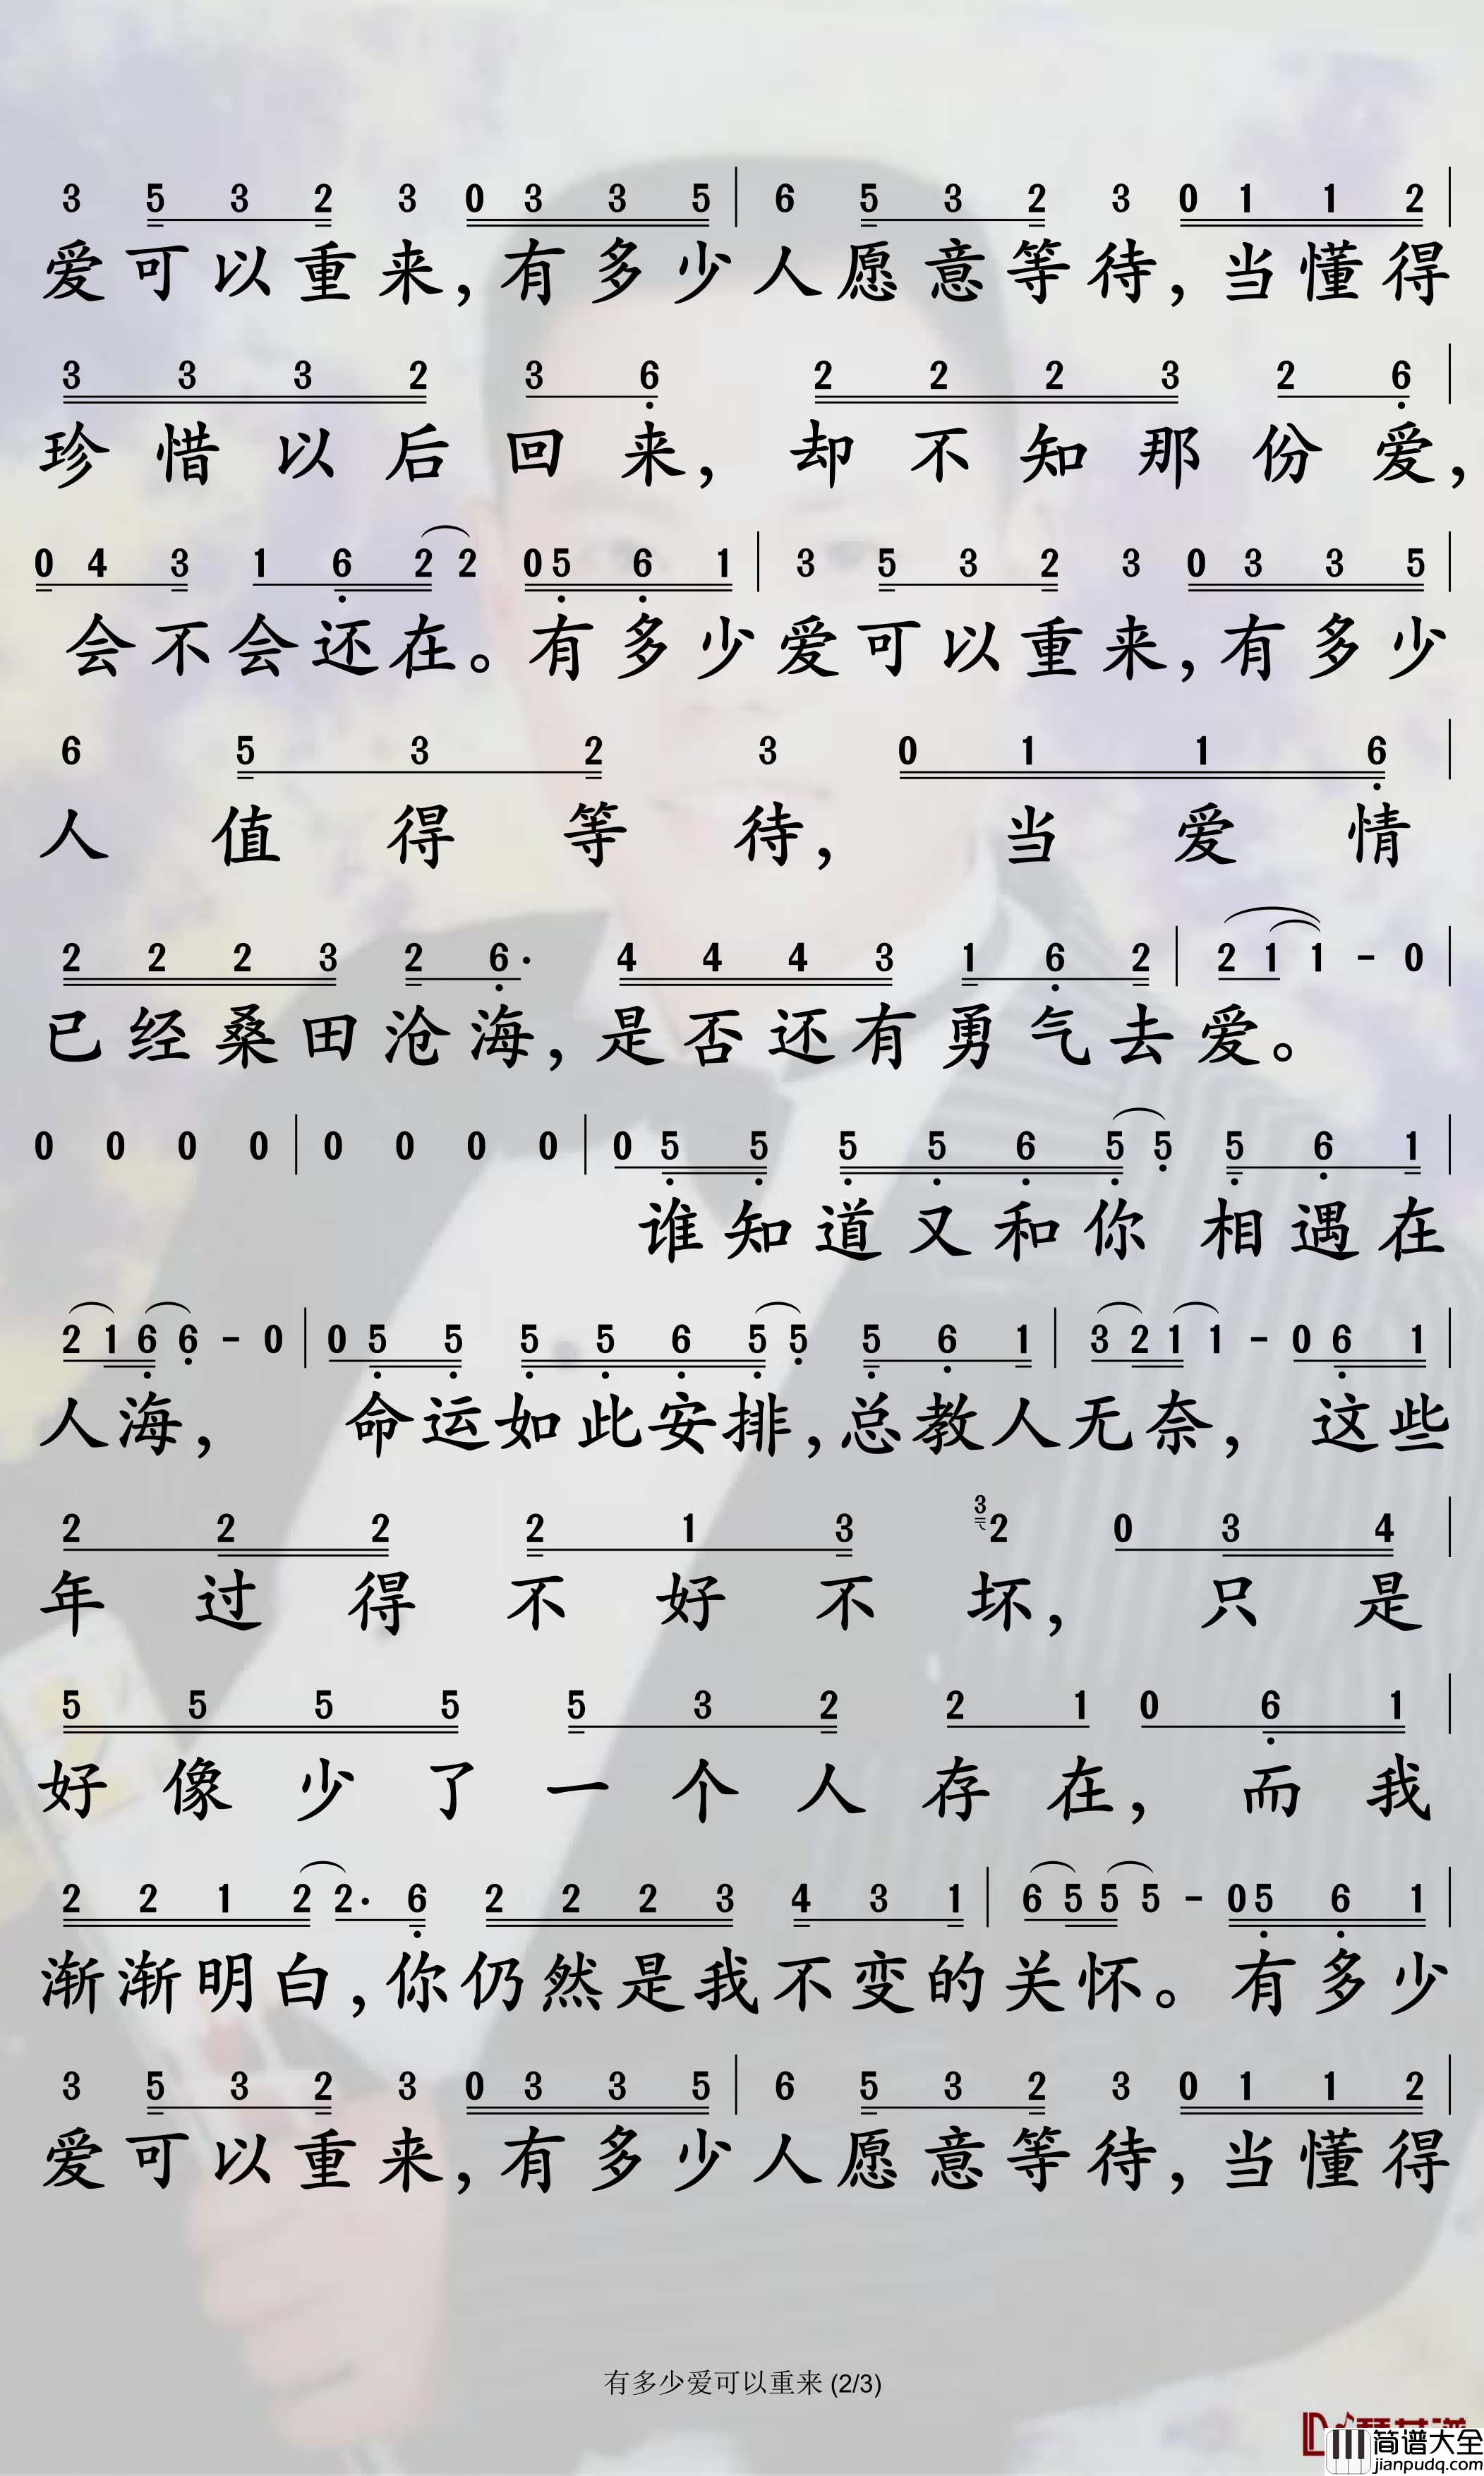 3 5 3 2 3 0 3 3 5 | 6 5 3 2 3 0 1 1 2 |
爱可以重来,有多少人愿意等待,当懂得
3 3 3 2 3 6 2 2 2 3 2 6 |
珍惜以后回来,却不知那份爱,
0 4 3 1 6 2 2 0 5 6 1 | 3 5 3 2 3 0 3 3 5 |
会不会还在。有多少爱可以重来,有多少
6 5 3 2 3 0 1 1 6 |
人值得等待,当爱情
2 2 2 3 2 6· 4 4 4 3 1 6 2 | 2 1 1 - 0 |
已经桑田沧海,是否还有勇气去爱。
0 0 0 0 | 0 0 0 0 | 0 5 5 5 5 6 5 5 5 6 1 |
谁知道又和你相遇在
2 1 6 6 - 0 | 0 5 5 5 5 6 5 5 5 6 1 | 3 2 1 1 - 0 6 1 |
人海,命运如此安排,总教人无奈,这些
2 2 2 2 1 3 3 2 0 3 4 |
年过得不好不坏,只是
5 5 5 5 5 3 2 2 1 0 6 1 |
好像少了一个人存在,而我
2 2 1 2 2· 6 2 2 2 3 4 3 1 | 6 5 5 5 - 0 5 6 1 |
渐渐明白,你仍然是我不变的关怀。有多少
3 5 3 2 3 0 3 3 5 | 6 5 3 2 3 0 1 1 2 |
爱可以重来,有多少人愿意等待,当懂得
有多少爱可以重来 (2/3)
简谱大全
jianpudq.com